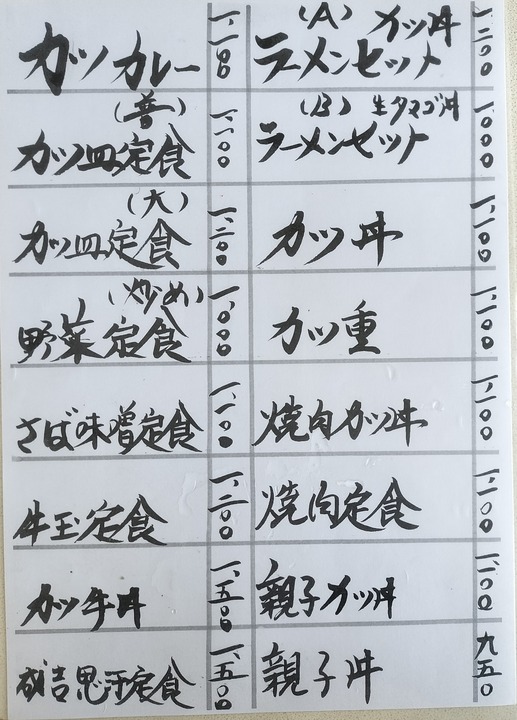 カツカレー 一、一〇〇
(普)
カツ皿定食 一、一〇〇
(大)
カツ皿定食 一、二〇〇
(炒め)
野菜定食 一、〇〇〇
さば味噌定食 一、一〇〇
牛玉定食 一、二〇〇
カツ牛丼 一、五〇〇
成吉思汗定食 一、五〇〇
(A) カツ丼
ラーメンセット 一、二〇〇
(B) 生タマゴ丼
ラーメンセット 一、〇〇〇
カツ丼 一、一〇〇
カツ重 一、一〇〇
焼肉カツ丼 一、一〇〇
焼肉定食 一、一〇〇
親子カツ丼 一、一〇〇
親子丼 九五〇